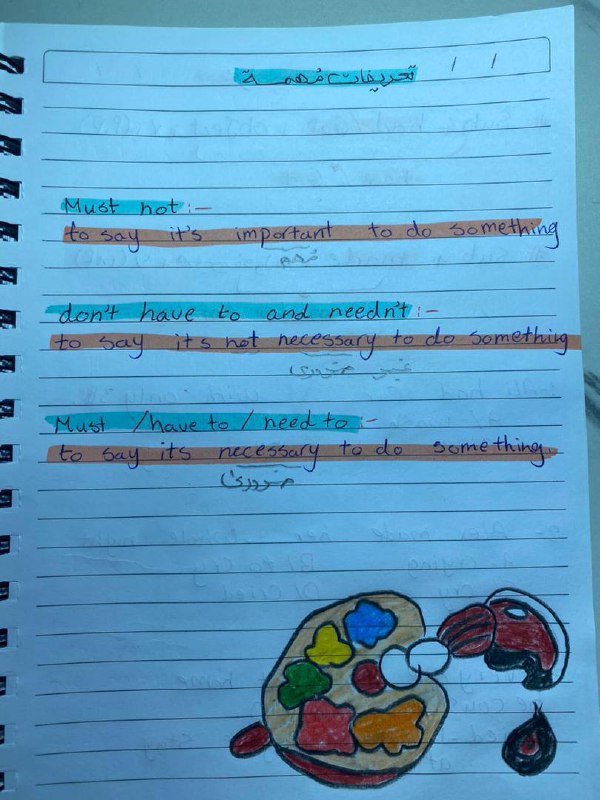 تعريفات مُهمة
/ /
Must not :-
to say it's important to do something
مُهم
don't have to and needn't :-
to say it's not necessary to do something
غير ضروري
Must /have to / need to :-
to say its necessary to do something
ضروري